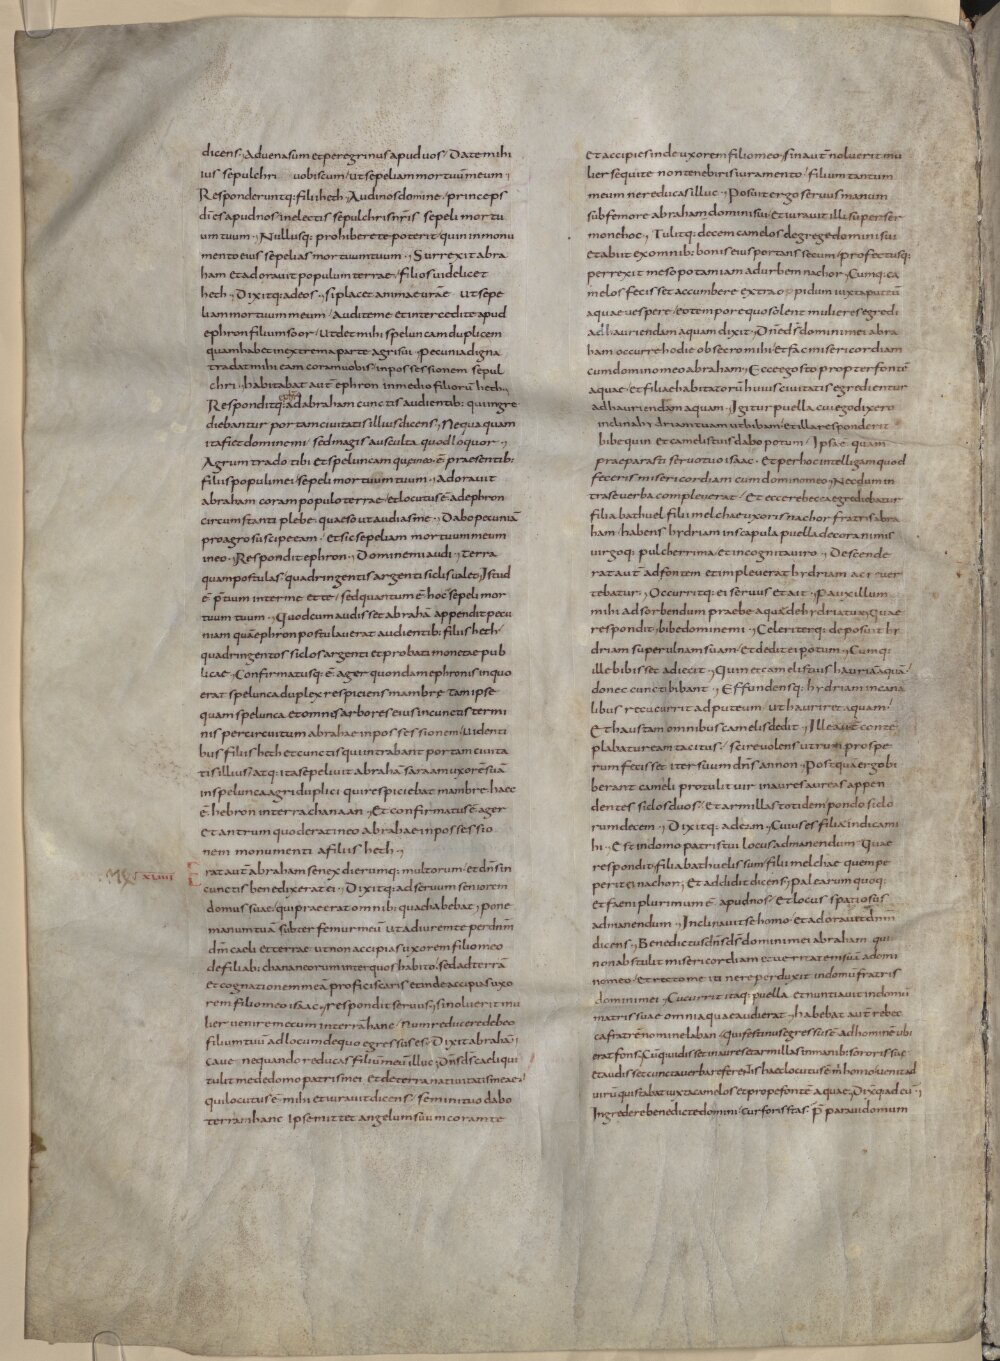 dicens. Advena sum et peregrinus apud vos. Date mihi
ius sepulchri vobiscum. ut sepeliam mortuū meum.
Responderuntq: filii heth. Audi nos domine. princeps
dī es apud nos. in electis sepulchris nr̄is sepeli mortu
um tuum. Nullusq: prohibere te poterit quin in monu
mento eius sepelias mortuum tuum. Surrexit abra
ham et adoravit populum terrae. filios videlicet
heth. Dixitq: ad eos. si placet animae vr̄ae ut sepe
liam mortuum meum. Audite me et intercedite apud
ephron filium soor. Ut det mihi speluncam duplicem
quam habet in extrema parte agri sui. Pecunia digna
tradat mihi eam coram vobis. in possessionem sepul
chri. habitabat aut̄ ephron in medio filiorū heth.
Responditq: ad abraham cunctis audientib: qui ingre
diebantur portam civitatis illius dicens. Nequaquam
ita fiet domine mi. sed magis ausculta quod loquor.
Agrum trado tibi et speluncam quę in eo ē. praesentib:
filiis populi mei. sepeli mortuum tuum. Adoravit
abraham coram populo terrae. et locutus ē ad ephron
circumstanti plebe. quaeso ut audias me. Dabo pecuniā
pro agro suscipe eam. Et sic sepeliam mortuum meum
in eo. Respondit ephron. Domine mi audi. Terra
quam postulas quadringentis argenti siclis valet. Istud
ē p̄tium inter me et te. sed quantum ē hoc. sepeli mor
tuum tuum. Quod cum audisset abrahā appendit pecu
niam quā ephron postulaverat audientib: filiis heth.
quadringentos siclos argenti et probati monetae pub
licae. Confirmatusq: ē ager quondam ephronis in quo
erat spelunca duplex respiciens mambre tam ipse
quam spelunca et omnes arbores eius in cunctis termi
nis per circuitum abrahae in possessionem. videnti
bus filiis heth et cunctis qui intrabant portam civita
tis illius. atq: ita sepelivit abrahā saraam uxorē suā
in spelunca agri duplici qui respiciebat mambre. haec
ē hebron in terra chanaan. Et confirmatus ē ager
et antrum quod erat in eo abrahae in possessio
nem monumenti a filiis heth.
xlviiii Erat aut̄ abraham senex dierumq: multorum. et dn̄s in
cunctis benedixerat ei. Dixitq: ad servum seniorem
domus suae. qui praeerat omnib: quae habebat. pone
manum tuā subter femur meū ut adiurem te per dn̄m
dm̄ caeli et terrae. ut non accipias uxorem filio meo
de filiab: chananeorum inter quos habito. sed ad terrā
et cognationem meā proficiscaris et inde accipias uxo
rem filio meo isaac. respondit servus. si noluerit mu
lier venire mecum in terrā hanc. Num reducere debeo
filium tuū ad locum de quo egressus es. Dixit abrahā
Cave nequando reducas filiū meū illuc. Dn̄s ds̄ caeli qui
tulit me de domo patris mei et de terra nativitatis meae.
qui locutus ē mihi et iuravit dicens. semini tuo dabo
terram hanc ipse mittet angelum suum coram te
et accipies inde uxorem filio meo. sin aut̄ noluerit mu
lier sequi te non teneberis iuramento. filium tantum
meum ne reducas illuc. Posuit ergo servus manum
sub femore abraham domini sui. et iuravit illi super ser
mon hoc. Tulitq: decem camelos de grege domini sui
et abiit ex omnib: bonis eius portans secum. profectusq:
perrexit mesopotamiam ad urbem nachor. Cumq: ca
melos fecisset accumbere extra oppidum iuxta puteū
aquae vespere. eo tempore quo solent mulieres egredi
ad hauriendam aquam dixit. Dn̄e ds̄ domini mei abra
ham occurre hodie obsecro mihi. Et fac misericordiam
cum domino meo abraham. Ecce ego sto prope fontē
aquae. et filiae habitatorū huius civitatis egredientur
ad hauriendam aquam. Igitur puella cui ego dixero
inclina hydriam tuam ut bibam. et illa responderit
bibe quin et camelis tuis dabo potum. Ipsa ē quam
praeparasti servo tuo isaac. Et per hoc intelligam quod
feceris misericordiam cum domino meo. Necdum in
tra se verba compleverat. Et ecce rebecca egrediebatur
filia bathuel filii melchae uxoris nachor fratris abra
ham. habens hydriam in scapula puella decora nimis
virgoq: pulcherrima et incognita viro. Descende
rat aut̄ ad fontem et impleverat hydriam ac rever
tebatur. Occurritq: ei servus et ait. Pauxillum
mihi ad sorbendum praebe aquae de hydria tua. Quae
respondit. bibe domine mi. Celeriterq: deposuit hy
driam super ulnam suam. Et dedit ei potum. Cumq:
ille bibisset adiecit. Quin et camelis tuis hauriā aquā
donec cuncti bibant. Effundensq: hydriam in cana
libus recucurrit ad puteum ut hauriret aquam.
Et haustam omnibus camelis dedit. Ille aut̄ conte
plabatur eam tacitus. scire volens utrum prospe
rum fecisset iter suum dn̄s an non. Postquā ergo bi
berant cameli protulit vir inaures aureas appen
dentes siclos duos. et armillas totidem pondo siclo
rum decem. Dixitq: ad eam. Cuius es filia indica mi
hi. Est in domo patris tui locus ad manendum. Quae
respondit. filia bathuelis sum filii melchae quem pe
perit ei nachor. Et addidit dicens. Palearum quoq:
et faeni plurimum ē apud nos. et locus spatiosus
ad manendum. Inclinavit se homo et adoravit dn̄m
dicens. Benedictus dn̄s ds̄ domini mei abraham qui
non abstulit misericordiam et veritatem suā a domi
no meo. et recto me itinere perduxit in domū fratris
domini mei. Cucurrit itaq: puella et nuntiavit in domū
matris suae omnia quae audierat. habebat aut̄ rebec
ca fratrē nomine laban. Qui festinus egressus ē ad hominē ubi
erat fons. Cūq: vidisset inaures et armillas in manib: sororis suę
et audisset cuncta verba referentis haec locutus ē m̄ homo. venit ad
virū qui stabat iuxta camelos et prope fontē aquae. Dixitq: ad eū.
Ingredere benedicte domini. cur foris stas. p̄paravi domum